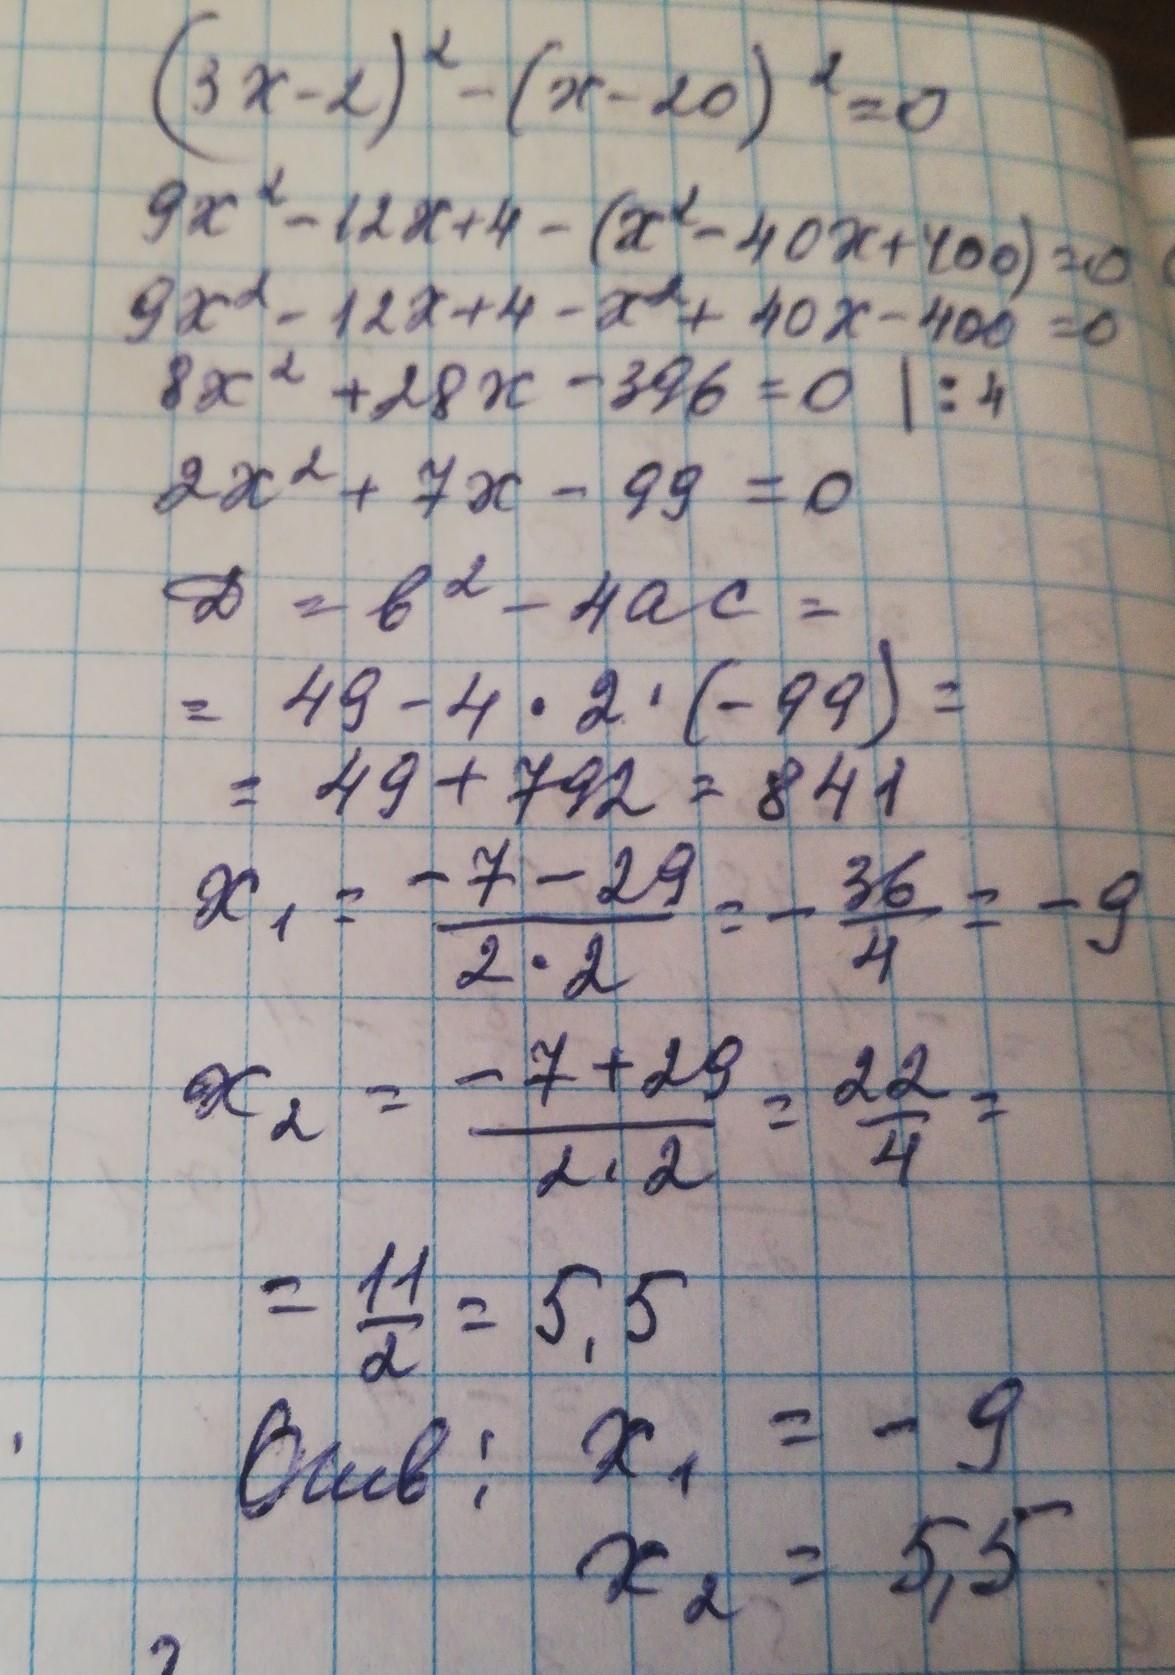 (3x-2)² - (x-20)² = 0
9x² - 12x + 4 - (x² - 40x + 400) = 0
9x² - 12x + 4 - x² + 40x - 400 = 0
8x² + 28x - 396 = 0 | : 4
2x² + 7x - 99 = 0
D = b² - 4ac =
= 49 - 4 · 2 · (-99) =
= 49 + 792 = 841
x₁ = (-7 - 29)/(2 · 2) = - 36/4 = -9
x₂ = (-7 + 29)/(2 · 2) = 22/4 =
= 11/2 = 5,5
Отв: x₁ = -9
x₂ = 5,5